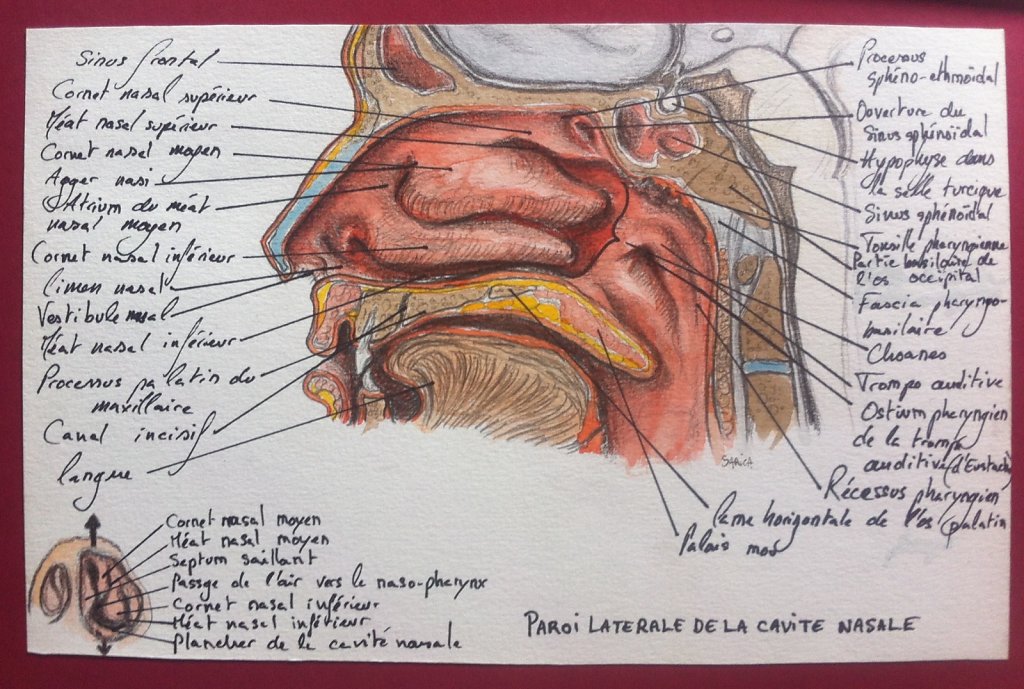 Sinus frontal
Cornet nasal supérieur
Méat nasal supérieur
Cornet nasal moyen
Agger nasi
Atrium du méat
nasal moyen
Cornet nasal inférieur
limen nasal
Vestibule nasal
Méat nasal inférieur
Processus palatin du
maxillaire
Canal incisif
langue
Processus
sphéno-ethmoïdal
Ouverture du
Sinus sphénoïdal
Hypophyse dans
la selle turcique
Sinus sphénoïdal
Tonsille pharyngienne
Partie basilaire de
l'os occipital
Fascia pharyngo-
basilaire
Choanes
Trompe auditive
Ostium pharyngien
de la trompe
auditive (d'Eustache)
Récessus pharyngien
lame horizontale de l'os palatin
Palais mou
SARICA
Cornet nasal moyen
Méat nasal moyen
Septum saillant
Passge de l'air vers le naso-pharynx
Cornet nasal inférieur
Méat nasal inférieur
Plancher de la cavité nasale
PAROI LATERALE DE LA CAVITE NASALE